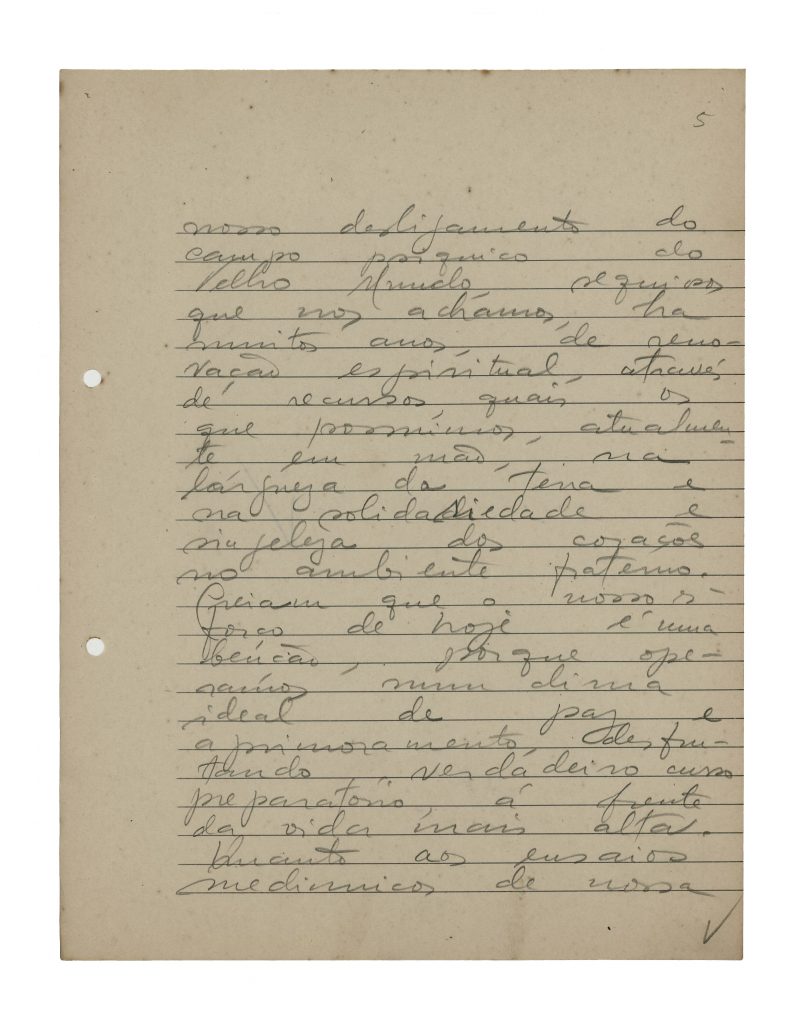 5
nosso desligamento do
campo psiquico do
Velho Mundo, sequiosos
que nos achámos, ha
muitos anos, de reno-
vação espiritual, através
de recursos, quais os
que possuimos, atualmen-
te em mão, na
largueza da terra e
na solidariedade e
singeleza dos corações
no ambiente fraterno.
Creiam que o nosso es-
forço de hoje é uma
benção, porque ope-
ramos num clima
ideal de paz e
aprimoramento, desfru-
tando, verdadeiro curso
preparatorio, á frente
da vida mais alta.
Quanto aos ensaios
mediunicos de nossa